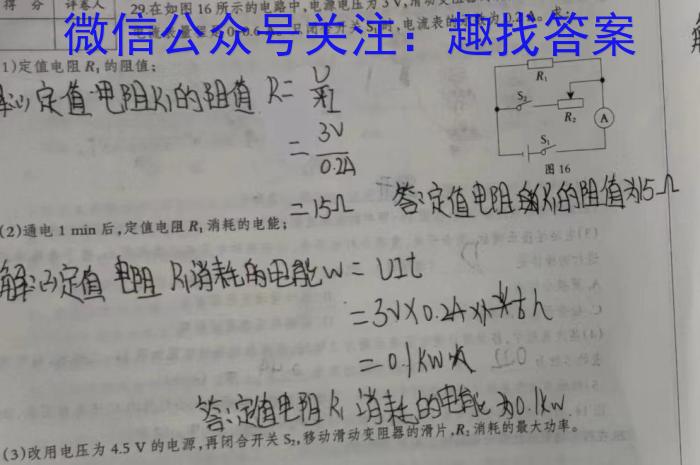 得 分 评卷人
29.在如图16所示的电路中,电源电压为3V,滑动变
微信公众号关注：趣找答案
(1)定值电阻R₁的阻值;
定值电阻R₁的阻值 R=U/I
=3V/0.2A
=15Ω
R₁
S₂
R₂
A
S₁
图16
答:定值电阻R₁的阻值为15Ω
(2)通电1 min后,定值电阻R₁消耗的电能;
解:(2)定值电阻R₁消耗的电能W=UIt
=3V×0.2A×
=0.1kw
答:定值电阻R₁消耗的电能为0.1kw.
(3)改用电压为4.5 V的电源,再闭合开关S₂,移动滑动变阻器的滑片,R₂消耗的最大功率。